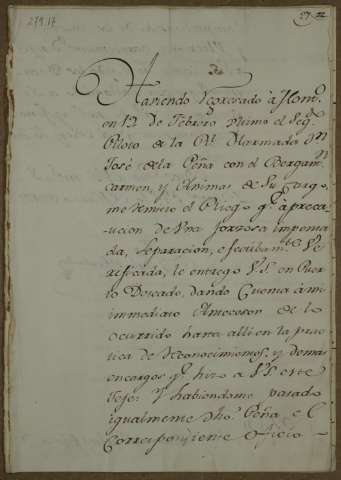 279.17
Haviendo regresado à Montev.º
en 12 de Febrero pximo el Seg.
Piloto de la Rl. Harmada Dn
José de la Peña con el Bergan.
Carmen, y Animas de Su cargo,
me remitio el Pliego q.e à preca
ucion de una forzosa impensa
da, Separacion, efectibam.te Ve
rificada, le entregò V.S. en Puer
to Deseado, dando Cuenta à mi
immediato Antecesor de lo
ocurrido hasta alli en la prac
tica de reconocimientos, y demas
encargos q.e hizo a V.S. este
Jefe: Y habiendome pasado
igualmente dho. Peña el
Correspondiente oficio